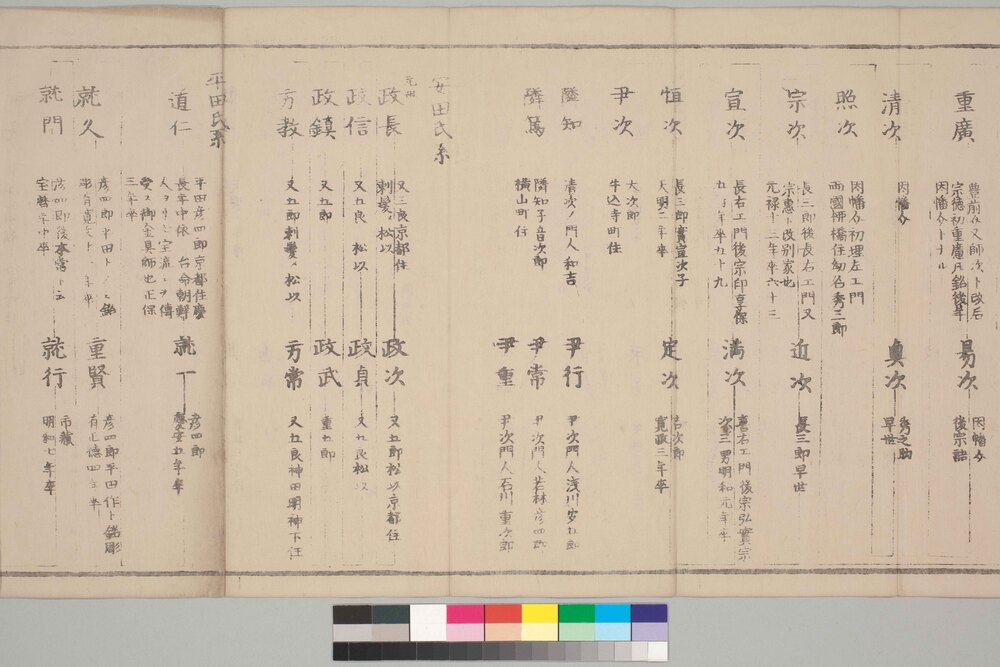 重廣
豊前 又師次ト改后
宗徳初重廣ト銘後年
因幡介トナル
易次
因幡介
後宗誌
清次
因幡介
真次
秀之助
早世
照次
因幡介初理左エ門
両國柳橋住幼名秀三郎
宗次
長三郎後長右エ門又
宗惠ト改別家也
元禄十三年卒六十三
近次
長三郎早世
宣次
長右エ門後宗印享保
五子年卒九十九
満次
喜右エ門後宗弘實宗
次三男明和元年卒
恒次
長三郎實宣次子
天明二年卒
定次
吉次郎
寛政三年卒
尹次
大次郎
牛込寺町住
隣知
清次ノ門人和吉
尹行
尹次門人浅川安五郎
隣篤
隣知子音次郎
横山町住
尹常
尹次門人若林彦四郎
尹重
尹次門人石川重次郎
安田氏系
元祖
政長
又三良京都住
剃髪 松以
政次
又五郎松以京都住
政信
又五良 松以
政貞
又九良松以
政鎮
又五郎
政武
重五郎
方教
又五郎剃髪 松以
方常
又五良神田明神下住
平田氏系
道仁
平田彦四郎京都住慶
長年中依 台命朝鮮
人 室流 傳
受ス御金具師也正保
三年卒
就一
彦四郎
慶安五年卒
就久
彦四郎平田ト 銘
重賢
彦四郎平田作ト銘彫
有正徳四 年卒
就門
彦四郎後本所ト云
宝暦 年中卒
就行
市蔵
明和七年卒